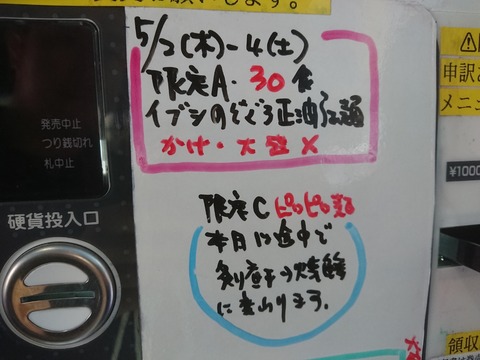 願いします。
5/2(木)-4(土)
限定A・30食
イブシのどぐろ正油らぁ麺
かけ・大盛 ×
発売中止
つり銭切れ
札中止
硬貨投入口
限定C ピロピロ麺
本日は途中で
剣煮干→焼鯵
に変わります。
申訳
メニュ
¥1000
領収